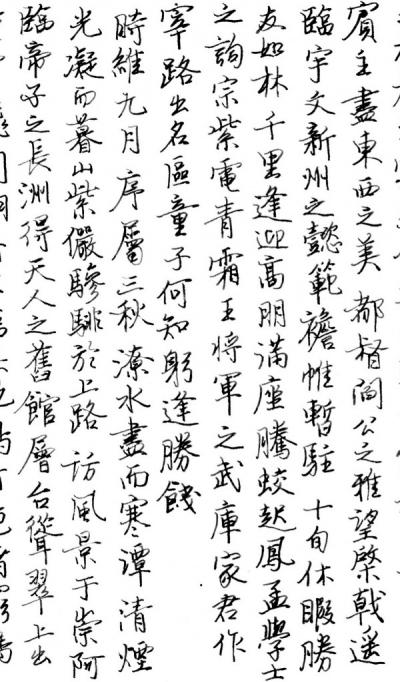 賓主盡東西之美都督閻公之雅望棨戟遙
臨宇文新州之懿範襜帷暫駐十旬休暇勝
友如林千里逢迎高朋滿座騰蛟起鳳孟學士
之詞宗紫電青霜王将軍之武庫家君作
宰路出名區童子何知躬逢勝餞
時維九月序屬三秋潦水盡而寒潭清煙
光凝而暮山紫儼驂騑於上路訪風景于崇阿
臨帝子之長洲得天人之舊館層台聳翠上出